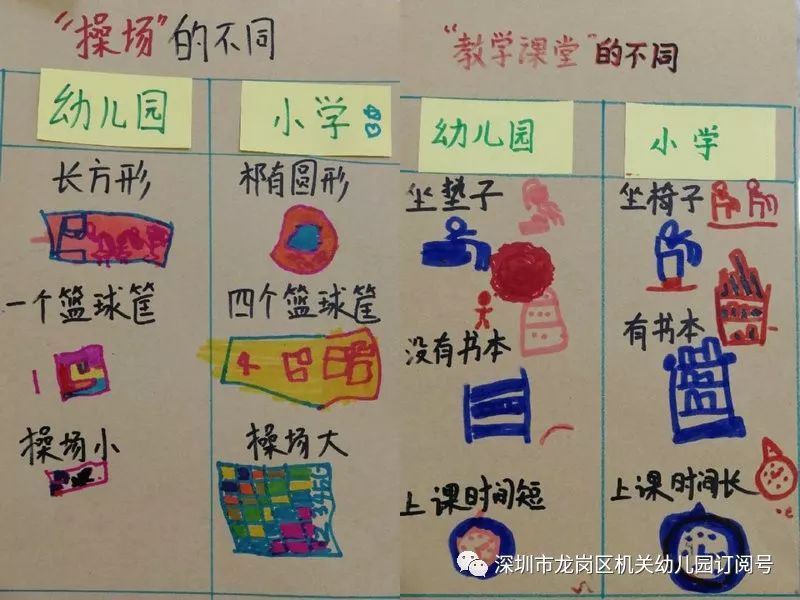 "操场"的不同
幼儿园
小学
长方形
椭圆形
一个篮球筐
四个篮球筐
操场小
操场大
"教学课堂"的不同
幼儿园
小学
坐垫子
坐椅子
没有书本
有书本
上课时间短
上课时间长
深圳市龙岗区机关幼儿园订阅号